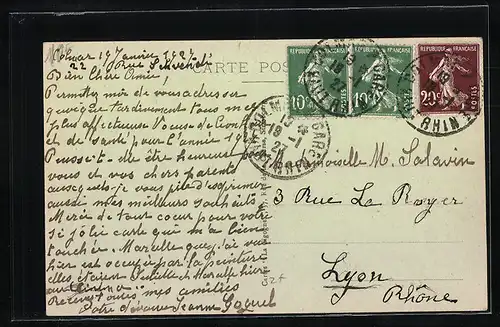 Colmar 19 Janvier 1927
22 Rue
Bien Chère Amie,
Permettez moi de vous adresser
quoique tardivement tous mes
plus affectueux Voeux de
et de santé pour l'année 19
Puisse-t-elle être heureuse pour
vous et vos chers parents
auxquels je vous prie d'exprimer
aussi mes meilleurs souhaits.
Merci de tout coeur pour votre
si jolie carte qui m'a bien
touchée. Marcelle que j'ai vue
hier est occupée par la peinture
elles étaient et Marcelle hier
au
Recevez toutes mes amitiés
Votre Jeanne
CARTE POS
REPUBLIQUE FRANÇAISE
10c
POSTES
REPUBLIQUE FRANÇAISE
10c
POSTES
REPUBLIQUE FRANÇAISE
20c
POSTES
COLMAR GARE
19 -1
27
Mademoiselle M. Salavin
3 Rue Le Royer
Lyon
Rhône